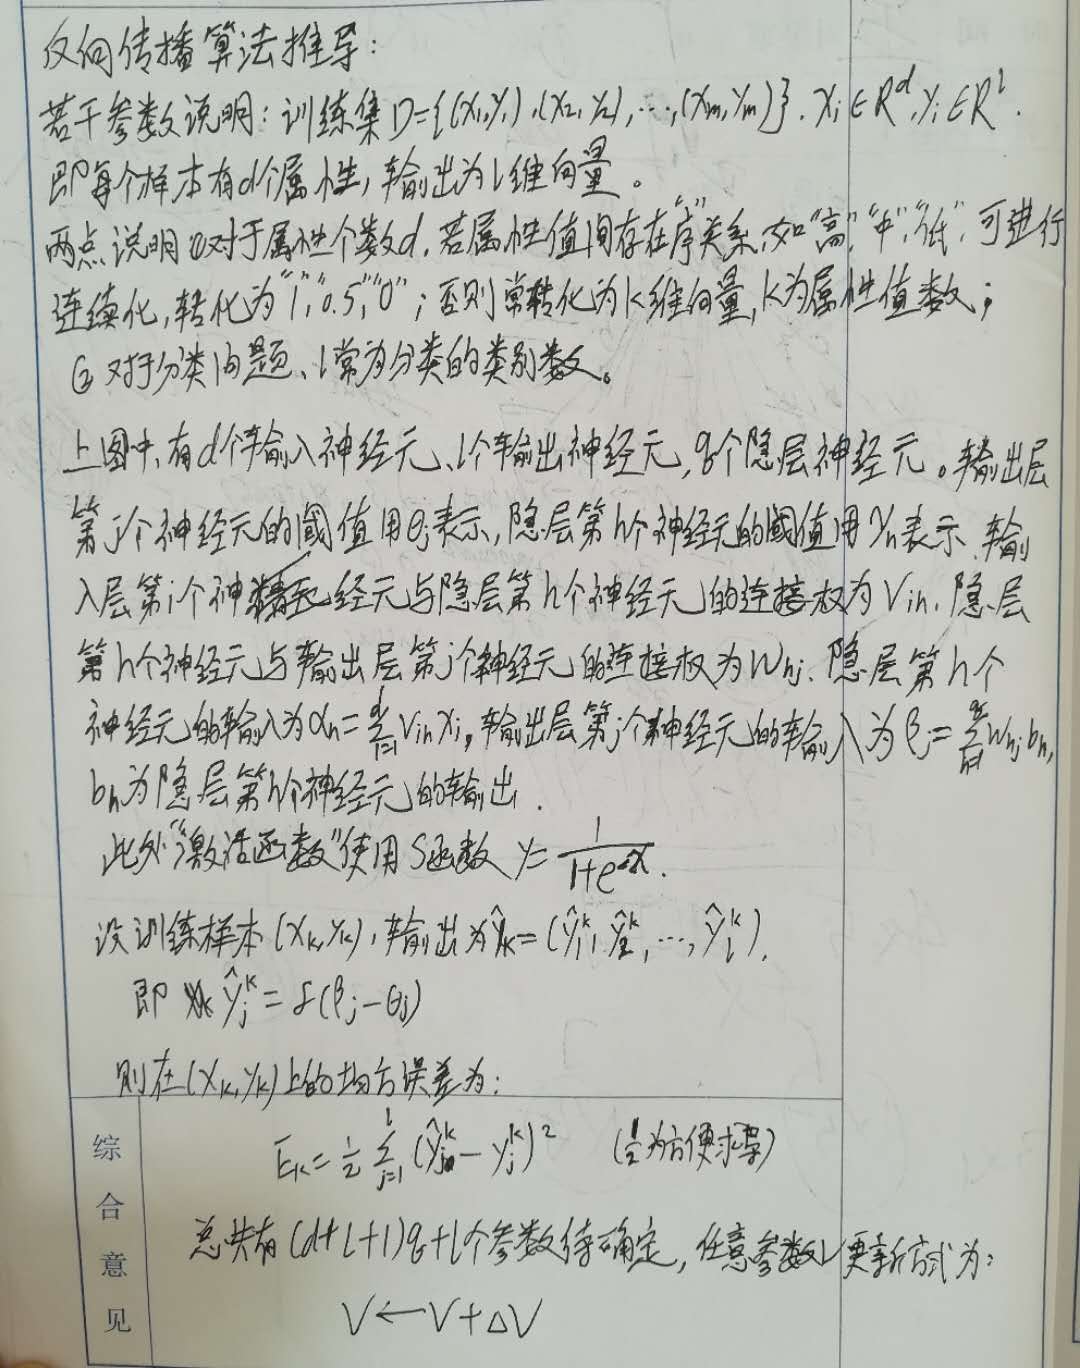 反向传播算法推导:
若干参数说明:训练集D={(x₁,y₁),(x₂,y₂),…,(xₘ,yₘ)}. xᵢ∈Rᵈ,yᵢ∈Rˡ.
即每个样本有d个属性,输出为l维向量。
两点说明①对于属性个数d,若属性值间存在"序"关系,如"高","中","低",可进行
连续化,转化为"1","0.5","0";否则常转化为k维向量,k为属性值数;
②对于分类问题、l常为分类的类别数。
上图中,有d个输入神经元、l个输出神经元,q个隐层神经元。输出层
第j个神经元的阈值用θⱼ表示,隐层第h个神经元的阈值用γₕ表示,输
入层第i个神经元与隐层第h个神经元的连接权为Vᵢₕ,隐层
第h个神经元与输出层第j个神经元的连接权为Wₕⱼ.隐层第h个
神经元的输入为αₕ=∑ᵢ₌₁ᵈ vᵢₕxᵢ,输出层第j个神经元的输入为βⱼ=∑ₕ₌₁^q wₕⱼbₕ,
bₕ为隐层第h个神经元的输出.
此处"激活函数"使用S函数 y=1/(1+e^-x).
设训练样本(xₖ,yₖ),输出为ŷₖ=(ŷ₁ᵏ,ŷ₂ᵏ,…,ŷₗᵏ),
即 ŷⱼᵏ=f(βⱼ-θⱼ)
则在(xₖ,yₖ)上的均方误差为:
Eₖ=½∑ⱼ₌₁ˡ(ŷⱼᵏ-yⱼᵏ)² (½为方便求导)
总共有(d+l+1)q+l个参数待确定,任意参数v更新方式为:
V←V+△V
综
合
意
见